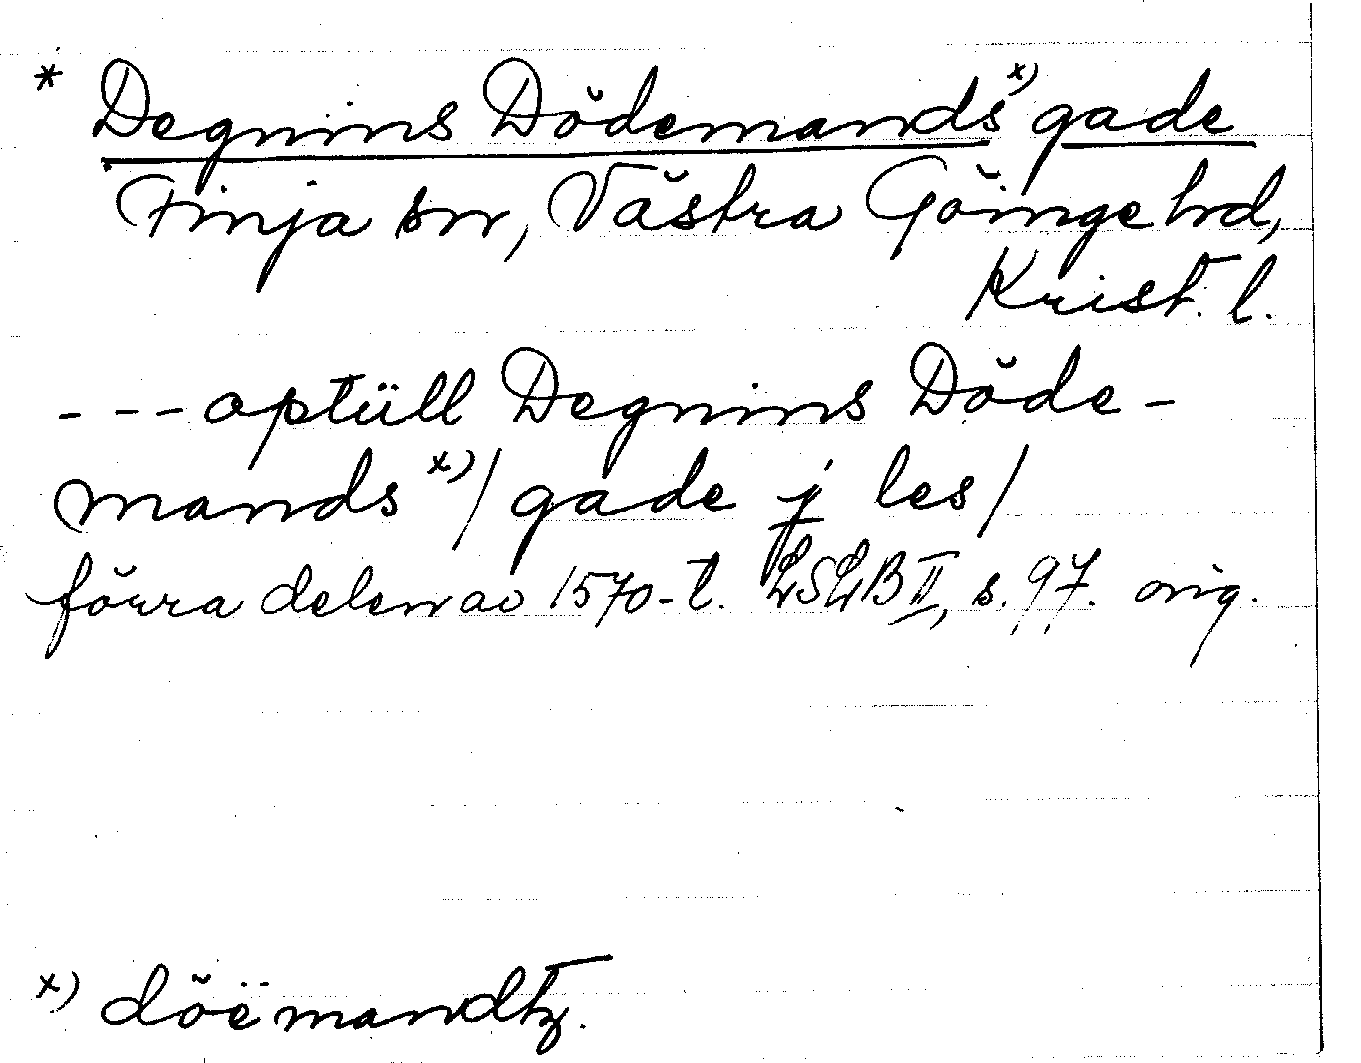 * Degnins Dödemands x) gade
Finja sn, Västra Göinge hd,
Krist. l.
- - - optüll Degnins Döde-
mands x) / gade j les /
förra delen av 1570-t. LSLB II, s. 97. orig.
x) döëmandtz.